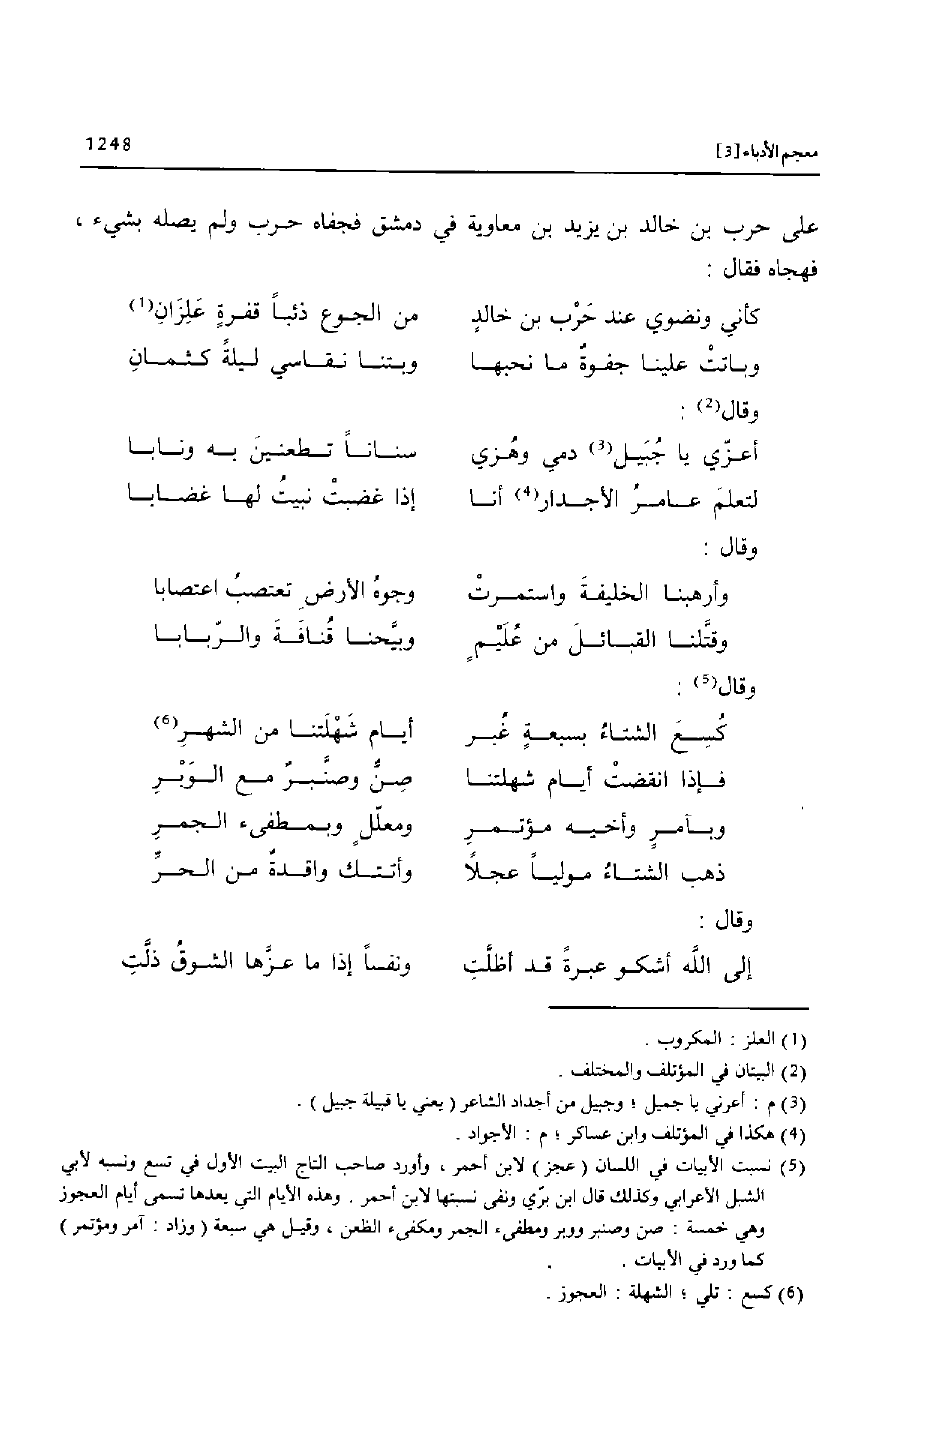 معجم الأدباء [3] 1248
على حرب بن خالد بن يزيد بن معاوية في دمشق فجفاه حرب ولم يصله بشيء ،
فهجاه فقال :
كأني ونضوي عند حَرْب بن خالدٍ من الجوع ذئباً قفرةٍ عَلِزَانِ(1)
وباتتْ علينا جفوةٌ ما نحبها وبتنا نقاسي ليلةً كثمانِ
وقال(2) :
أعزّي يا جُبَيل(3) دمي وهُزي سناناً تطعنينَ به ونابا
لتعلمَ عامرُ الأجدار(4) أنا إذا غضبتْ نبيتُ لها غضابا
وقال :
وأرهبنا الخليفةَ واستمرتْ وجوهُ الأرضِ تعتصبُ اعتصابا
وقتَّلنا القبائلَ من عُلَيْمٍ وبيَّحنا قُنافَةَ والرّبابا
وقال(5) :
كُسِعَ الشتاءُ بسبعةٍ غُبرِ أيام شَهْلَتنا من الشهرِ(6)
فإذا انقضتْ أيام شهلتنا صِنٌّ وصنَّبرٌ مع الوَبْرِ
وبآمرٍ وأخيه مؤتمرٍ ومعلّلٍ وبمطفىء الجمرِ
ذهب الشتاءُ مولياً عجلاً وأتتك واقدةٌ من الحرِّ
وقال :
إلى اللَّه أشكو عبرةً قد أظلَّتِ ونفساً إذا ما عزَّها الشوقُ ذلَّتِ
(1) العلز : المكروب .
(2) البيتان في المؤتلف والمختلف .
(3) م : أعرني يا جميل ؛ وجبيل من أجداد الشاعر ( يعني يا قبيلة جبيل ) .
(4) هكذا في المؤتلف وابن عساكر ؛ م : الأجواد .
(5) نسبت الأبيات في اللسان ( عجز ) لابن أحمر ، وأورد صاحب التاج البيت الأول في تسع ونسبه لأبي
الشبل الأعرابي وكذلك قال ابن برّي ونفى نسبتها لابن أحمر . وهذه الأيام التي يعدها تسمى أيام العجوز
وهي خمسة : صن وصنبر ووبر ومطفىء الجمر ومكفىء الظعن ، وقيل هي سبعة ( وزاد : آمر ومؤتمر )
كما ورد في الأبيات .
(6) كسع : تلي ؛ الشهلة : العجوز .